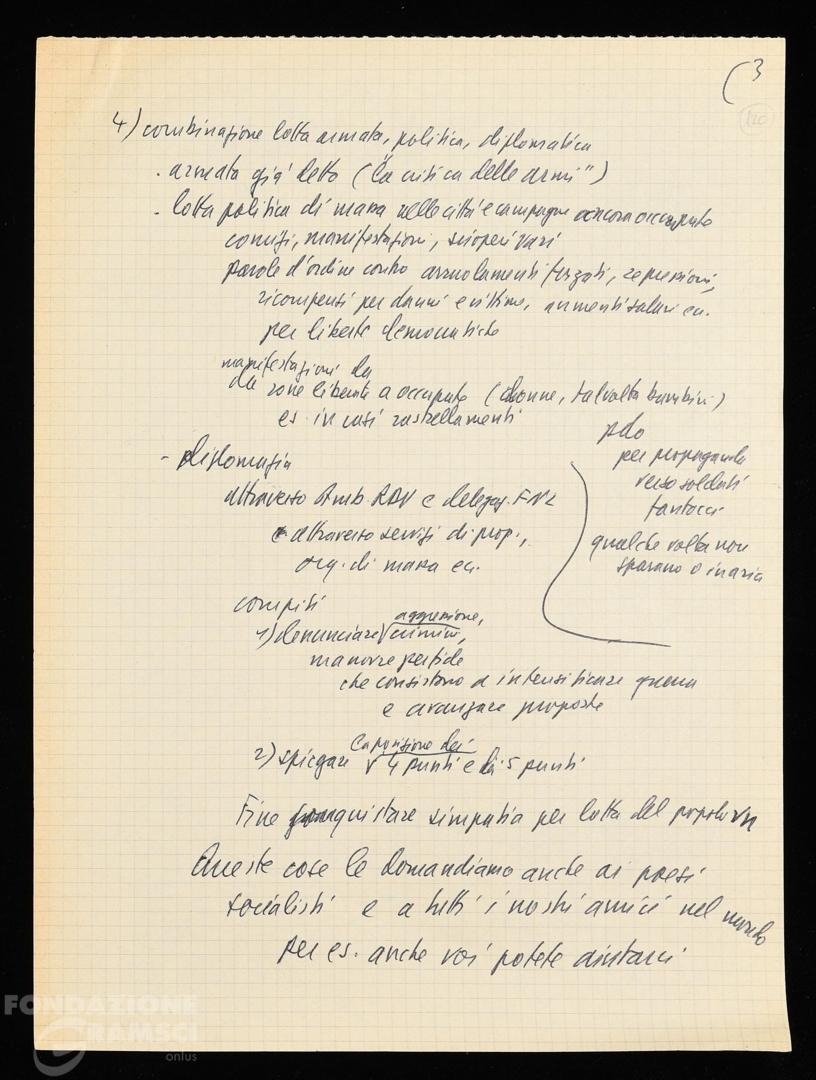 (3
120
4) combinazione lotta armata, politica, diplomatica
- armata già detto ("la critica delle armi")
- lotta politica di massa nelle città e campagne ancora occupate
comizi, manifestazioni, scioperi vari
parole d'ordine contro arruolamenti forzati, repressioni,
ricompensi per danni e vittime, aumenti salari ec.
per libertà democratiche
manifestazioni da
da zone liberate a occupate (donne, talvolta bambini)
es. in casi rastrellamenti
pdo
per propaganda
verso soldati
fantocci
qualche volta non
sparano o in aria
- diplomazia
attraverso Amb. RDV e delegaz. FNL
e attraverso servizi di prop.,
org. di massa ec.
compiti
aggressione,
1) denunciare √ crimini,
manovre perfide
che consistono a intensificare guerra
e avanzare proposte
la posizione dei
2) spiegare √ 4 punti e di 5 punti
Fine conquistare simpatia per lotta del popolo vn
Queste cose le domandiamo anche ai paesi
socialisti e a tutti i nostri amici nel mondo
per es. anche voi potete aiutarci
FONDAZIONE
GRAMSCI
onlus